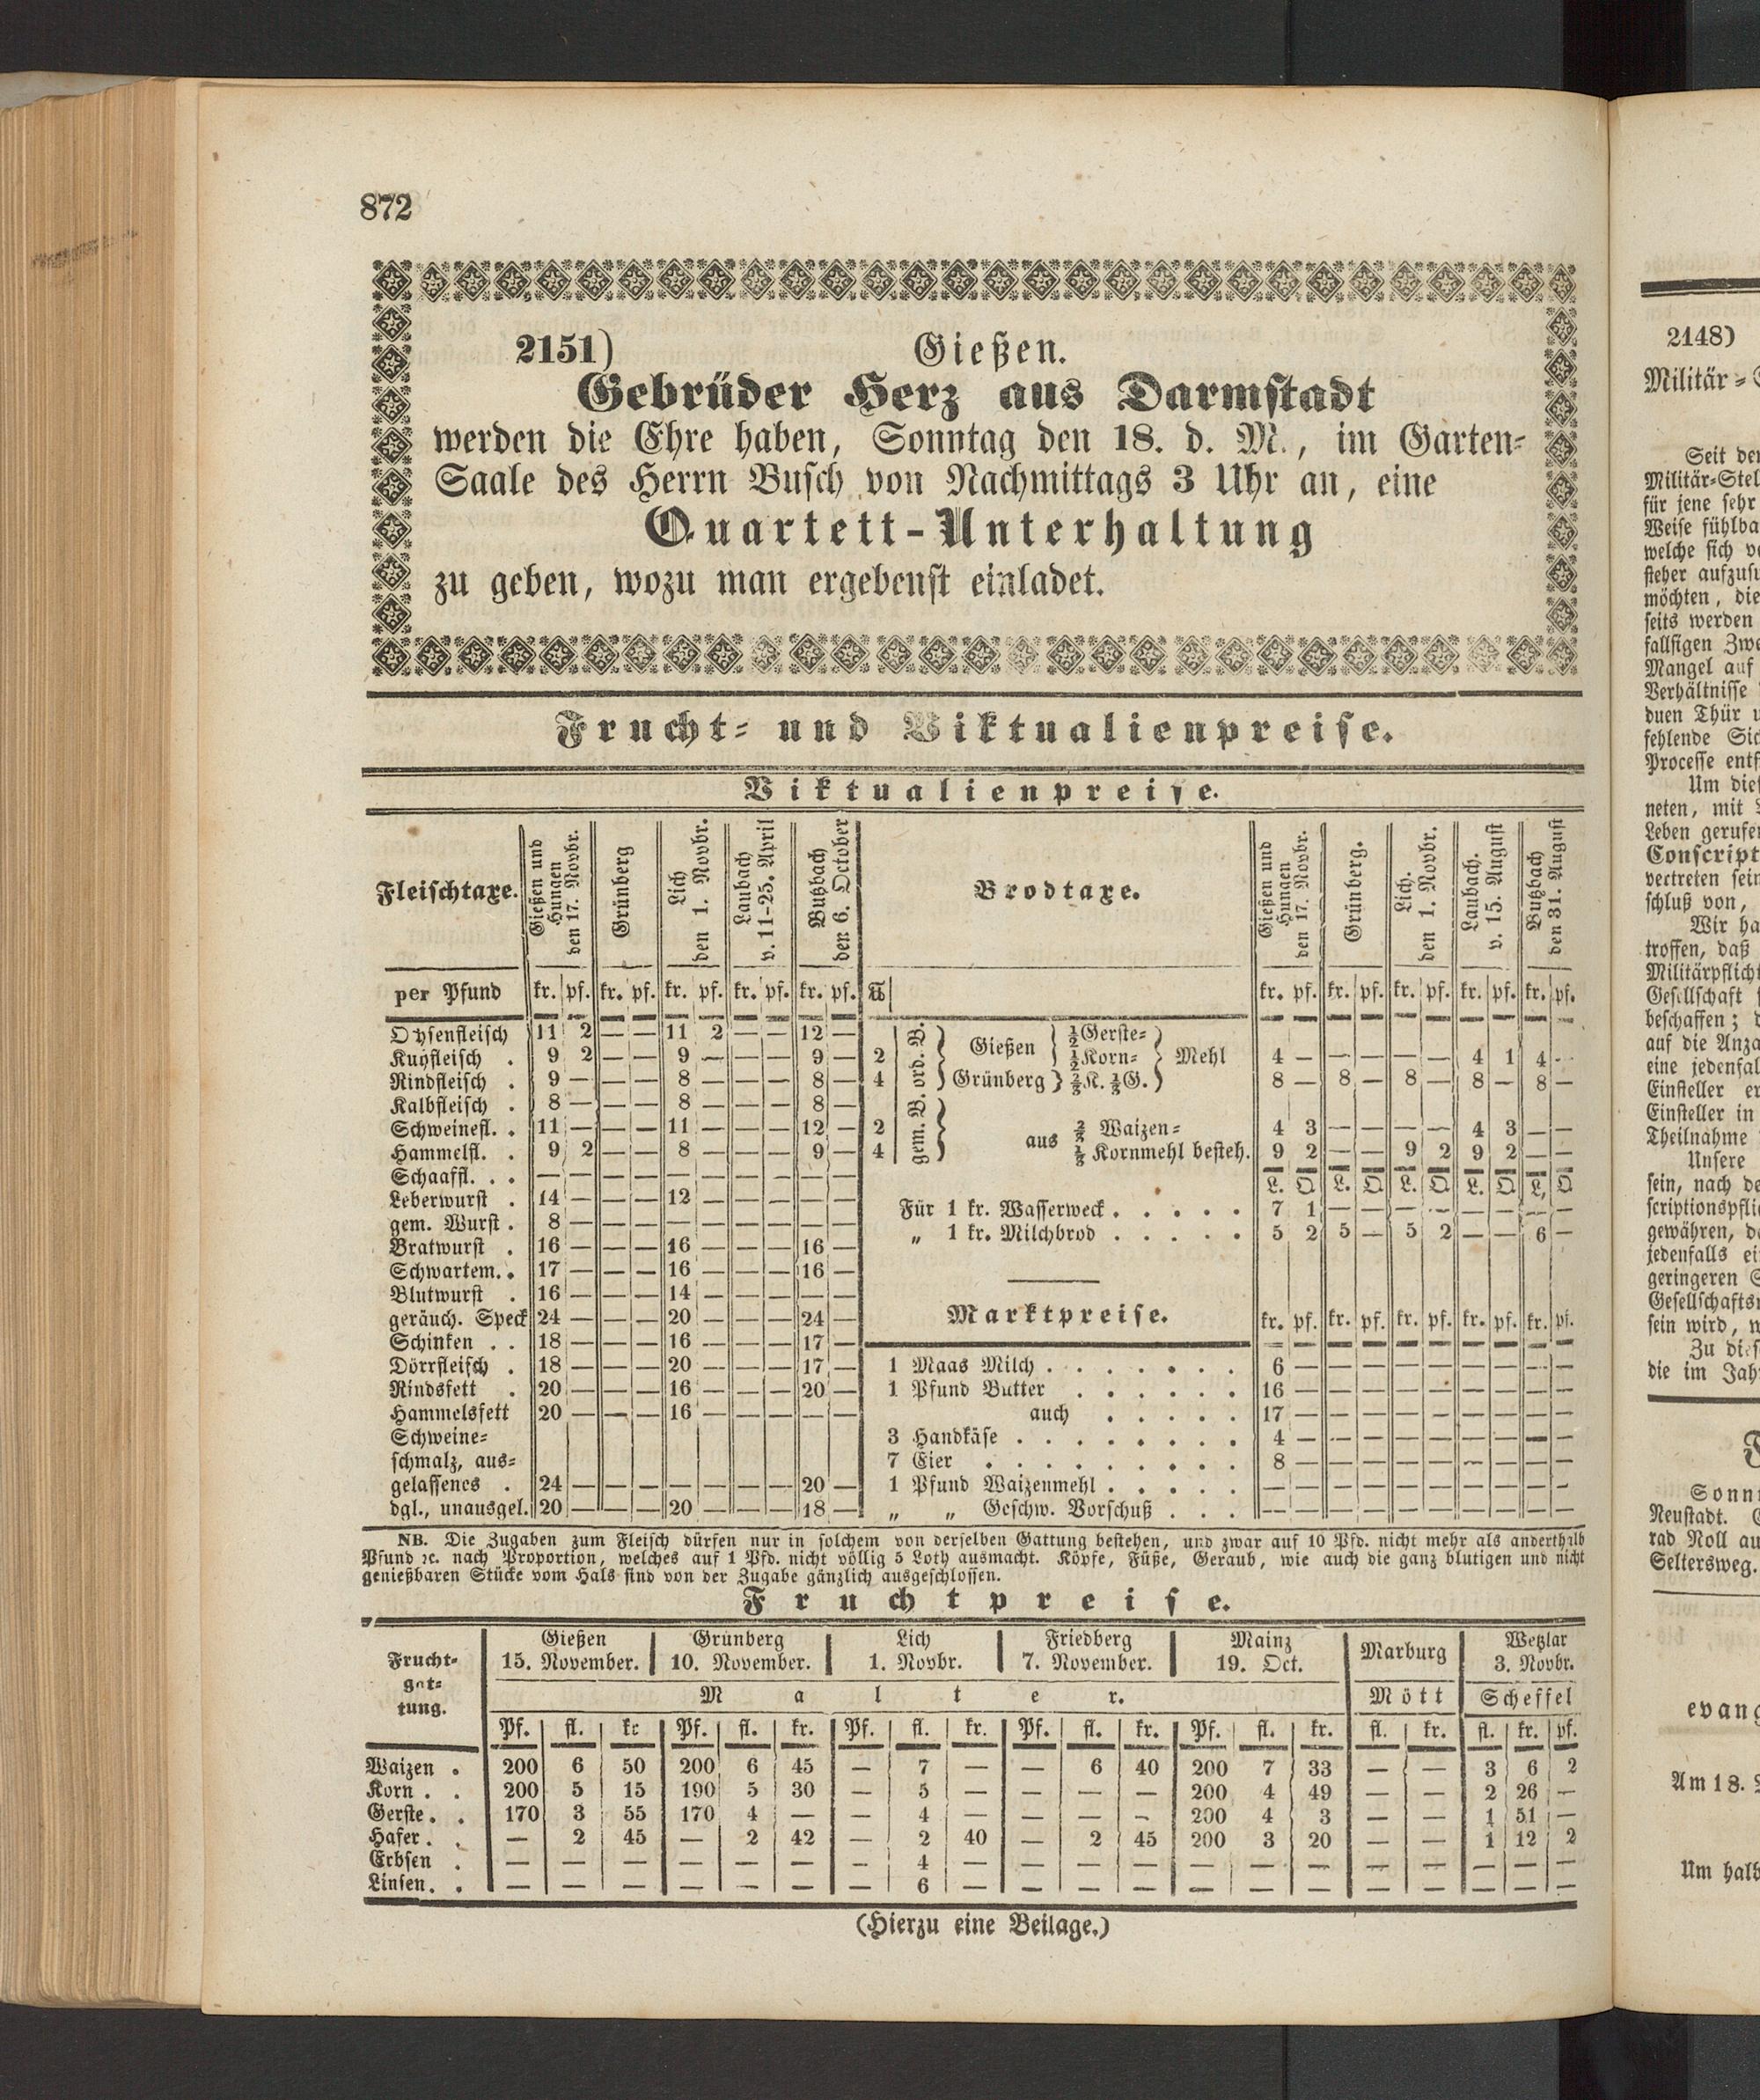 872
2151) Gießen.
Gebrüder Herz aus Darmstadt
werden die Ehre haben, Sonntag den 18. d. M., im Garten=
Saale des Herrn Busch von Nachmittags 3 Uhr an, eine
Quartett-Unterhaltung
zu geben, wozu man ergebenst einladet.
Frucht= und Viktualienpreise.
Viktualienpreise.
Fleischtaxe. Gießen und Hungen den 17. Novbr. Grünberg Lich den 1. Novbr. Laubach v. 11-25. April Butzbach den 6. October
per Pfund kr. pf. kr. pf. kr. pf. kr. pf. kr. pf.
Ochsenfleisch 11 2 — — 11 2 — — 12 —
Kuhfleisch . 9 2 — — 9 — — — 9 —
Rindfleisch . 9 — — — 8 — — — 8 —
Kalbfleisch . 8 — — — 8 — — — 8 —
Schweinefl. . 11 — — — 11 — — — 12 —
Hammelfl. . 9 2 — — 8 — — — 9 —
Schaaffl. . . — — — — — — — — — —
Leberwurst . 14 — — — 12 — — — — —
gem. Wurst . 8 — — — — — — — — —
Bratwurst . 16 — — — 16 — — — 16 —
Schwartem. . 17 — — — 16 — — — 16 —
Blutwurst . 16 — — — 14 — — — — —
geräuch. Speck 24 — — — 20 — — — 24 —
Schinken . . 18 — — — 16 — — — 17 —
Dörrfleisch . 18 — — — 20 — — — 17 —
Rindsfett . 20 — — — 16 — — — 20 —
Hammelsfett 20 — — — 16 — — — — —
Schweine=
schmalz, aus=
gelassenes . 24 — — — — — — — 20 —
dgl., unausgel. 20 — — — 20 — — — 18 —
Brodtaxe. Gießen und Hungen den 17. Novbr. Grünberg. Lich. den 1. Novbr. Laubach. v. 15. August Butzbach den 31. August
℔ kr. pf. kr. pf. kr. pf. kr. pf. kr. pf.
ord. B. Gießen ½ Gerste=
2 ½ Korn= Mehl 4 — — — — — 4 1 4 —
4 Grünberg ⅔ K. ⅓ G. 8 — 8 — 8 — 8 — 8 —
2 gem. B. aus ⅔ Waizen= 4 3 — — — — 4 3 — —
4 ⅓ Kornmehl besteh. 9 2 — — 9 2 9 2 — —
L. Q. L. Q. L. Q. L. Q. L. Q
Für 1 kr. Wasserweck . . . . . 7 1 — — — — — — — —
„ 1 kr. Milchbrod . . . . . 5 2 5 — 5 2 — — 6 —
Marktpreise. kr. pf. kr. pf. kr. pf. kr. pf. kr. pf.
1 Maas Milch . . . . . . . 6 — — — — — — — — —
1 Pfund Butter . . . . . . 16 — — — — — — — — —
auch . . . . . 17 — — — — — — — — —
3 Handkäse . . . . . . . . 4 — — — — — — — — —
7 Eier . . . . . . . . . 8 — — — — — — — — —
1 Pfund Waizenmehl . . . . . — — — — — — — — — —
„ „ Geschw. Vorschuß . . . — — — — — — — — — —
NB. Die Zugaben zum Fleisch dürfen nur in solchem von derselben Gattung bestehen, und zwar auf 10 Pfd. nicht mehr als anderthalb
Pfund ꝛc. nach Proportion, welches auf 1 Pfd. nicht völlig 5 Loth ausmacht. Köpfe, Füße, Geraub, wie auch die ganz blutigen und nicht
genießbaren Stücke vom Hals sind von der Zugabe gänzlich ausgeschlossen.
Fruchtpreise.
Frucht=gat=tung. Gießen 15. November. Grünberg 10. November. Lich 1. Novbr. Friedberg 7. November. Mainz 19. Oct. Marburg Wetzlar 3. Novbr.
Malter. Mött Scheffel
Pf. fl. kr Pf. fl. kr. Pf. fl. kr. Pf. fl. kr. Pf. fl. kr. fl. kr. fl. kr. pf.
Waizen . 200 6 50 200 6 45 — 7 — — 6 40 200 7 33 — — 3 6 2
Korn . . 200 5 15 190 5 30 — 5 — — — — 200 4 49 — — 2 26 —
Gerste . . 170 3 55 170 4 — — 4 — — — — 200 4 3 — — 1 51 —
Hafer . . — 2 45 — 2 42 — 2 40 — 2 45 200 3 20 — — 1 12 2
Erbsen . — — — — — — — 4 — — — — — — — — — — — —
Linsen . . — — — — — — — 6 — — — — — — — — — — — —
(Hierzu eine Beilage.)
2148)
Militär=
Seit
Militär=
für jene sehr
Weise
welche sich
steher
möchten, die
seits werden
fallsigen
Mangel auf
Verhältnisse
duen Thür
fehlende
Processe
Um
neten, mit
Leben
vertreten
schluß von,
Wir
troffen, daß
Gesellschaft
beschaffen;
auf die
eine
Einsteller
Einsteller in
Theilnahme
Unsere
sein, nach
gewähren,
jedenfalls
geringeren
sein wird,
Zu
die im
Neustadt.
rad Noll
Seltersweg.
Am 18.
Um